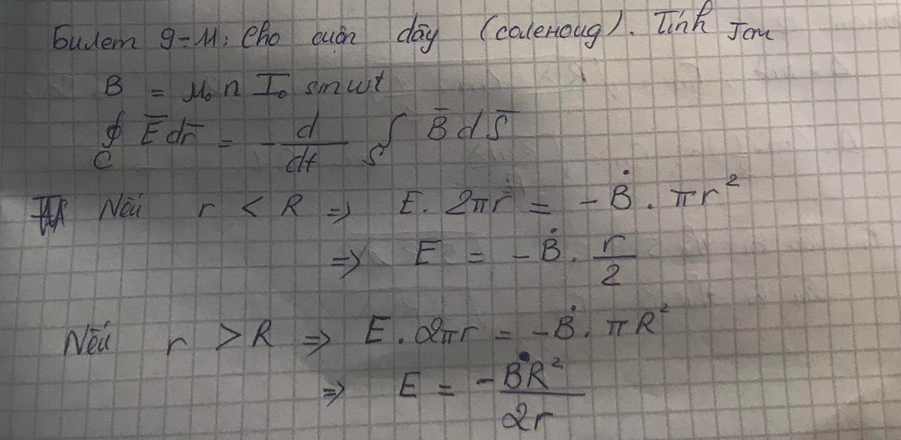 Билет 9-М: Cho cuộn dây (соленоид). Tính Jcm
B = μ₀ n I₀ sinωt
∮_C E̅ dr̅ = - d/dt ∫_S B̅ d S̅
Nếu r < R ⇒ E. 2πr = - Ḃ. πr²
⇒ E = - Ḃ. r/2
Nếu r > R ⇒ E. 2πr = - Ḃ. πR²
⇒ E = - ḂR²/2r